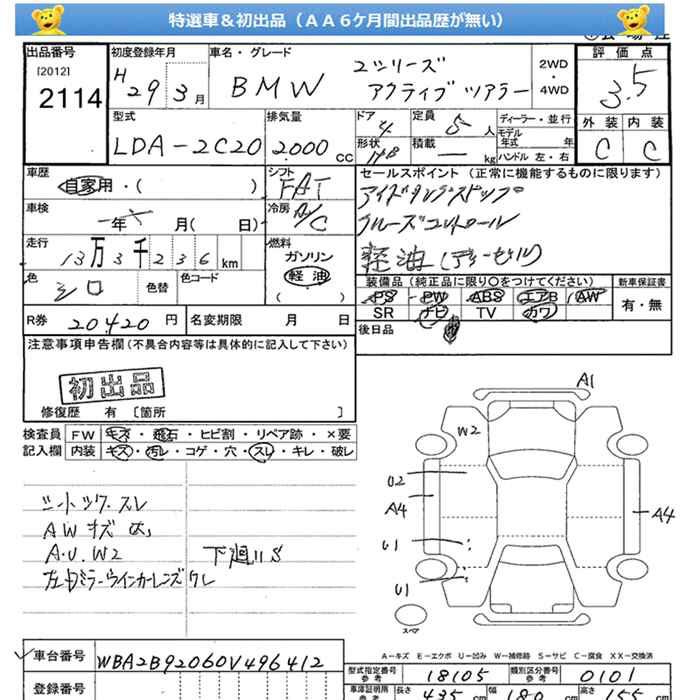 特選車＆初出品（ＡＡ６ケ月間出品歴が無い）
出品番号
[2012]
2114
初度登録年月
H29 3月
車名・グレード
BMW 2シリーズ
アクティブツアラー
2WD
・
4WD
評価点
3.5
型式
LDA-2C20
排気量
2000 cc
ドア
4
形状
HB
定員
5人
積載
― kg
ディーラー・並行
モデル
年式 年
ハンドル 左・右
外装
C
内装
C
車歴
自家用・( )
シフト
FAT
セールスポイント（正常に機能するものに限ります）
アイドリングストップ
クルーズコントロール
軽油（ディーゼル）
車検
年 月( 日)
冷房
A/C
走行
13万3千236km
燃料
ガソリン
軽油
( )
色
シロ
色替
色コード
装備品（純正品に限り○をつけてください）
PS PW ABS エアB AW
SR ナビ TV カワ
新車保証書
有・無
R券 20420 円
名変期限 月 日
後日品
注意事項申告欄（不具合内容等は具体的に記入して下さい）
初出品
修復歴 有 [箇所 ]
検査員
記入欄
FW キズ・飛石・ヒビ割・リペア跡・×要
内装 キズ・汚レ・コゲ・穴・スレ・キレ・破レ
シートツク、スレ
AWキズ
A.U.W2
下廻りS
左ドアミラーウインカーレンズワレ
A1
W2
U2
A4
A4
U1
U1
スペア
A-キズ E-エクボ U-凹み W-補修跡 S-サビ C-腐食 XX-交換済
車台番号 WBA2B92060V496412
型式指定番号
参考
18105
類別区分番号
参考
0101
登録番号
車庫証明用
参考
長さ 435 cm
幅 180 cm
高さ 155 cm